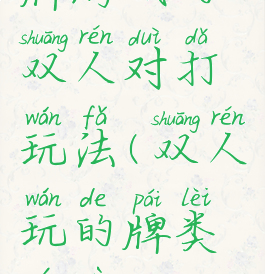 shuāng rén duì dǎ
双人对打
wán fǎ shuāng rén
玩法(双人
wán de pái lèi
玩的牌类